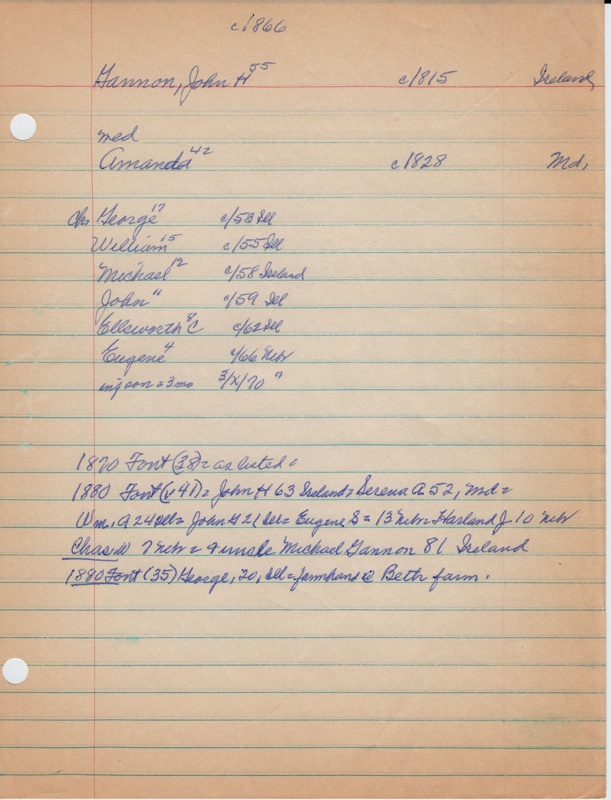 c1866
Gannon, John H 55 c1815 Ireland
med
Amanda 42 c1828 Md,
Chs George 17 c/53 Ill
William 15 c/55 Ill
Michael 12 c/58 Iseland
John 11 c/59 Ill
Ellsworth 8 C c/62 Ill
Eugene 4 c/66 Nebr
inf son = 3 mo 3/x/70 "
1870 Font (38) = as listed =
1880 Font (v 41) = John H 63 Ireland = Serena A 52, Md =
Wm. A 24 Ill = John H 21 Ill = Eugene S = 13 Nebr = Harland J 10 Nebr
Chas W 7 Nebr = + uncle Michael Gannon 81 Ireland
1880 Font (35) George, 20, Ill = farmhand @ Beth farm.